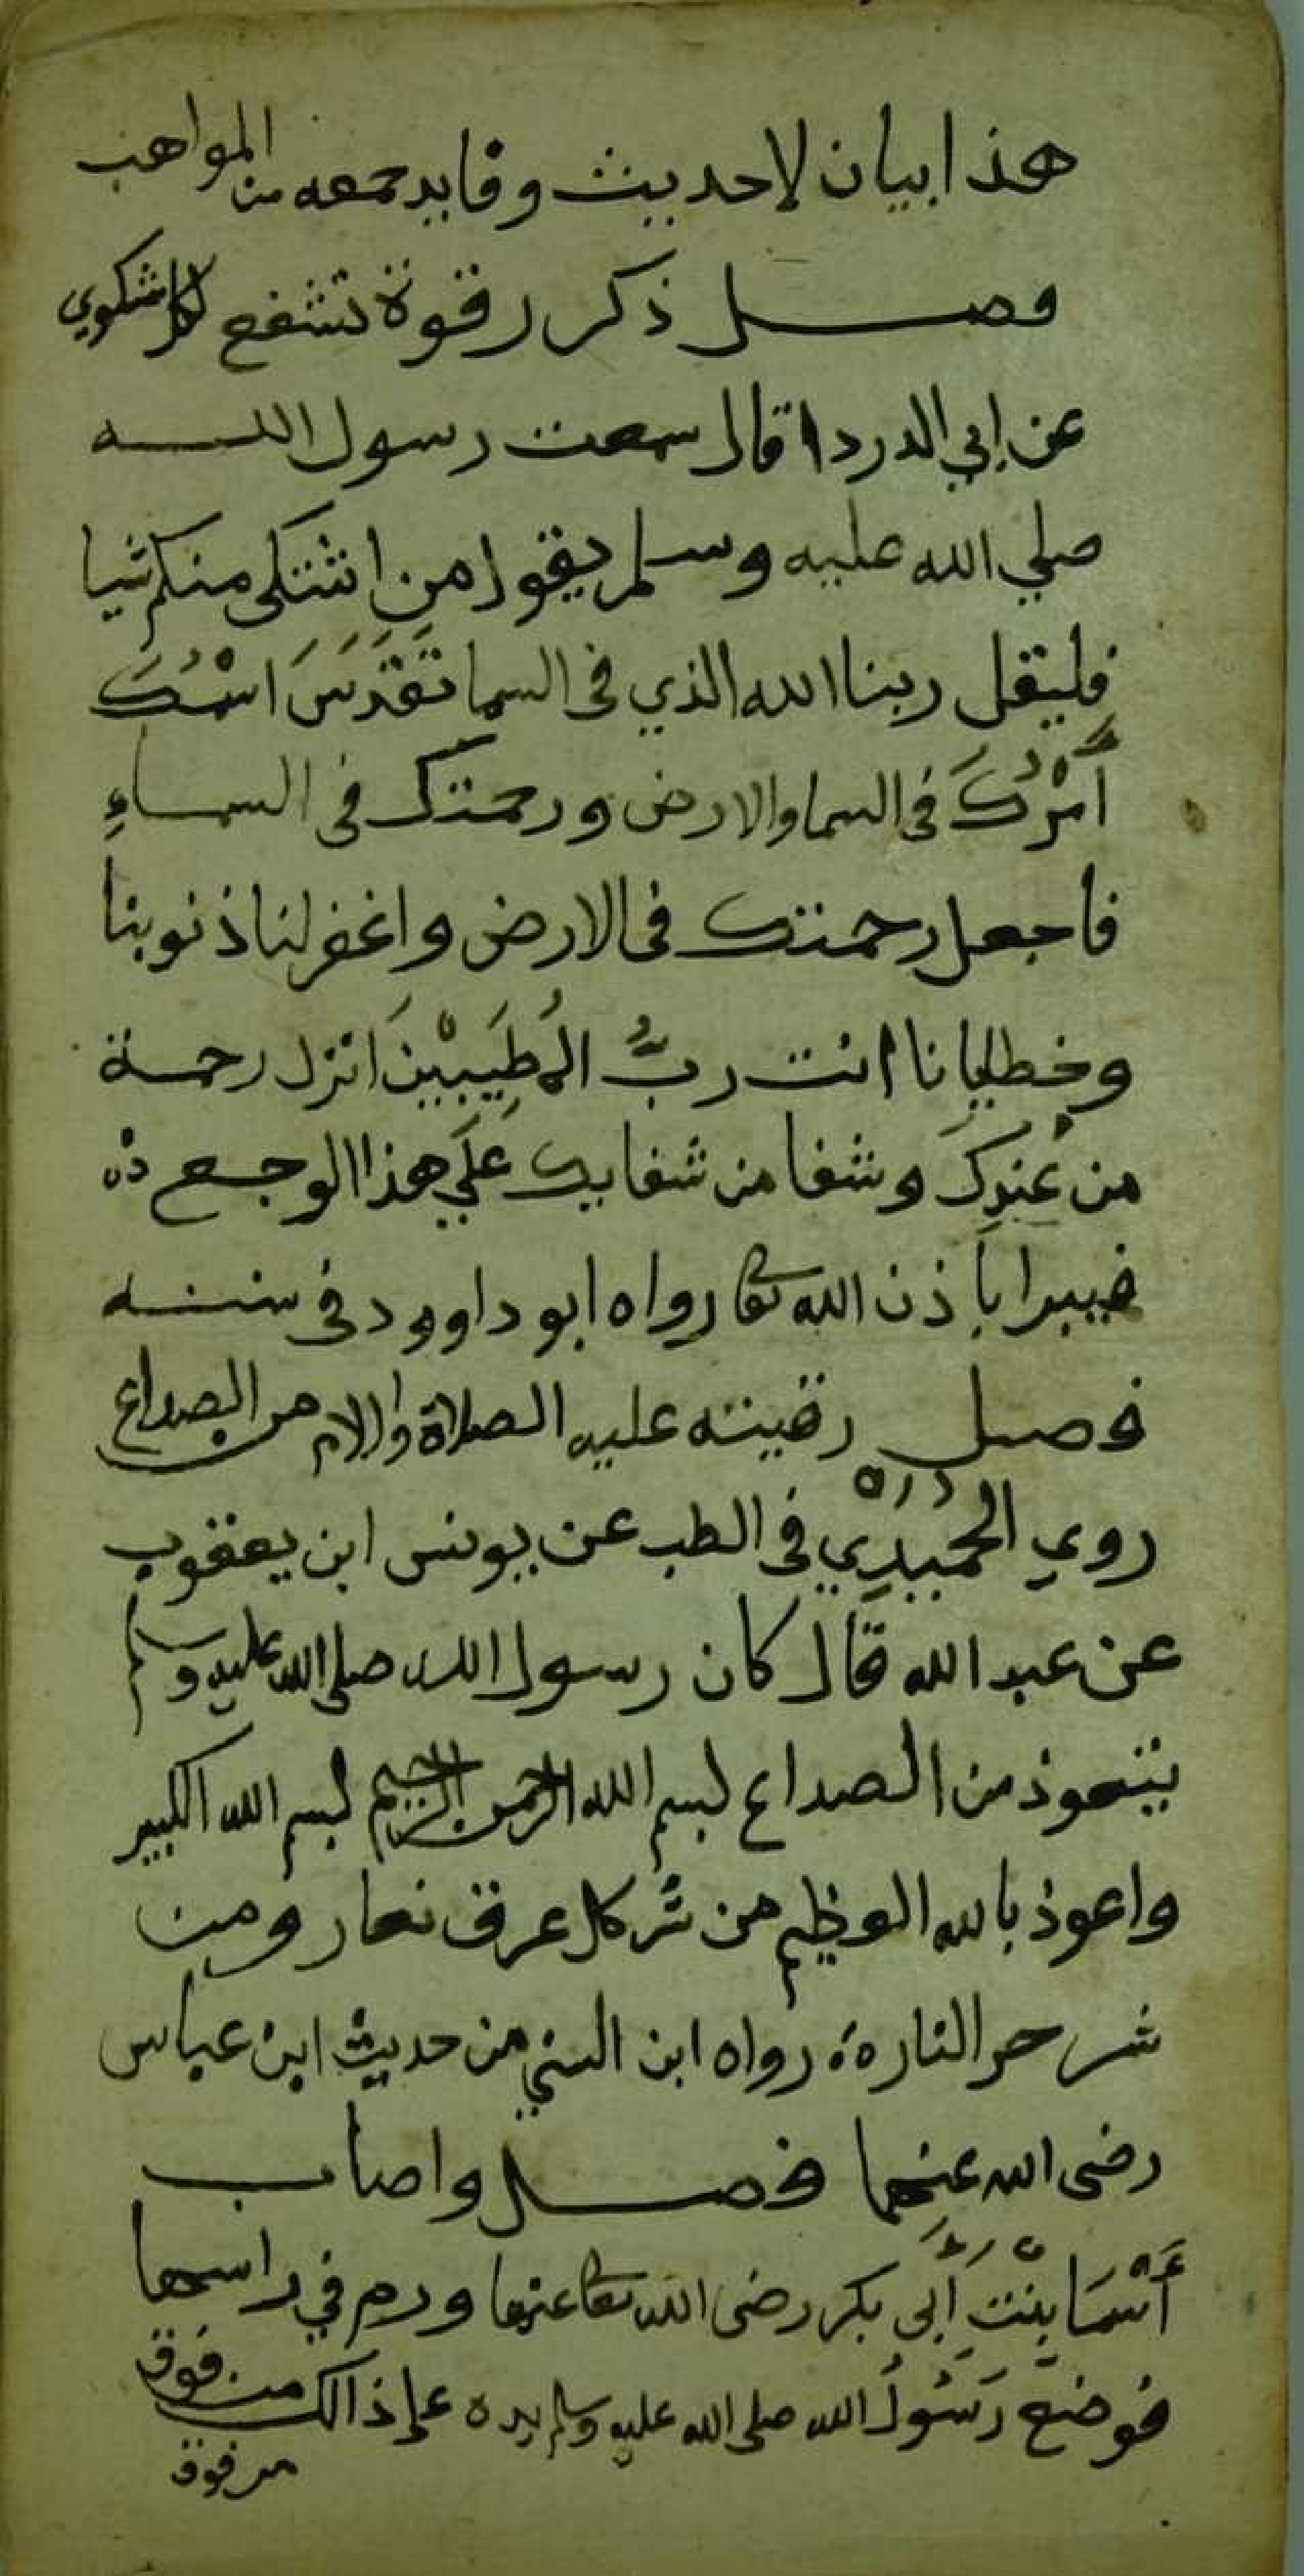 هذا بيان لاحديث وفايد جمعه من المواهب
فصل ذكر رقوة تشفع لكل شكوي
عن ابي الدردا قال سمعت رسول الله
صلي الله عليه وسلم يقول من اشتكى منكم شيا
فليقل ربنا الله الذي فى السما تَقَدَسَ اسْمُكَ
أَمْرُكَ فى السما والارض ورحمتك فى السماءِ
فاجعل رحمتك فى الارض واغفر لنا ذنوبنا
وخطايانا انت ربُّ المُطِيَبِيْينَ انزل رحمة
من عندِكَ وشفا من شفايك عَلَي هذا الوجع
فيبرا بأذن الله تعا رواه ابو داوود فى سننه
فصل رقيته عليه الصلاة والام من الصداع
روي الحُمَيْدِي فى الطب عن يونس ابن يعقوب
عن عبد الله قال كان رسول الله صلى الله عليه وسلم
يتعوذ من الصداع بسم الله الرحمن الرحيم بسم الله الكبير
واعوذ بالله العظيم من شر كل عرق نعار ومن
شر حر النار رواه ابن السني من حديث ابن عباس
رضى الله عنهما فصل واصاب
أَسْمَا بِنْتِ أَبِى بكر رضى الله تعا عنها ورم في راسها
فوضع رَسُولُ الله صلى الله عليه وسلم يده على ذالك من فوق
من فوق